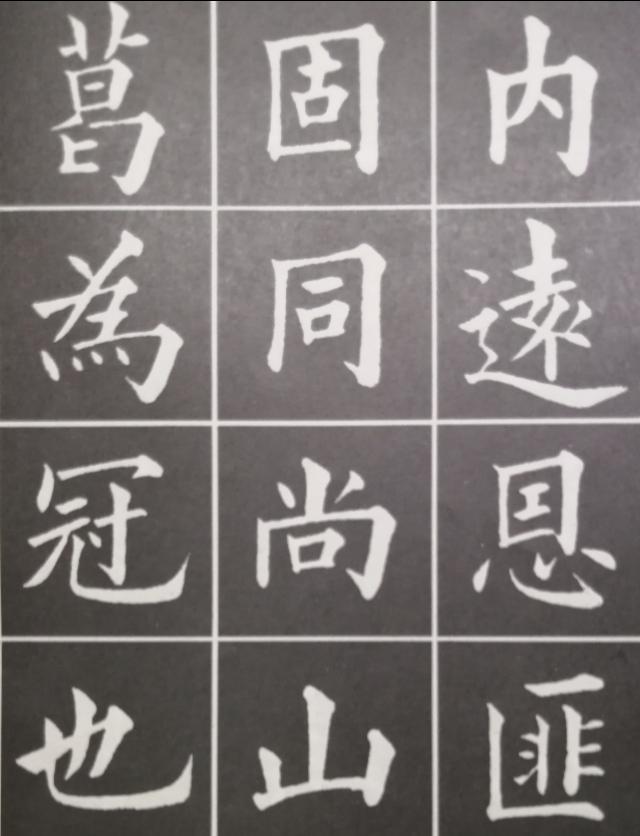 内遠恩匪
固同尚山
葛為冠也